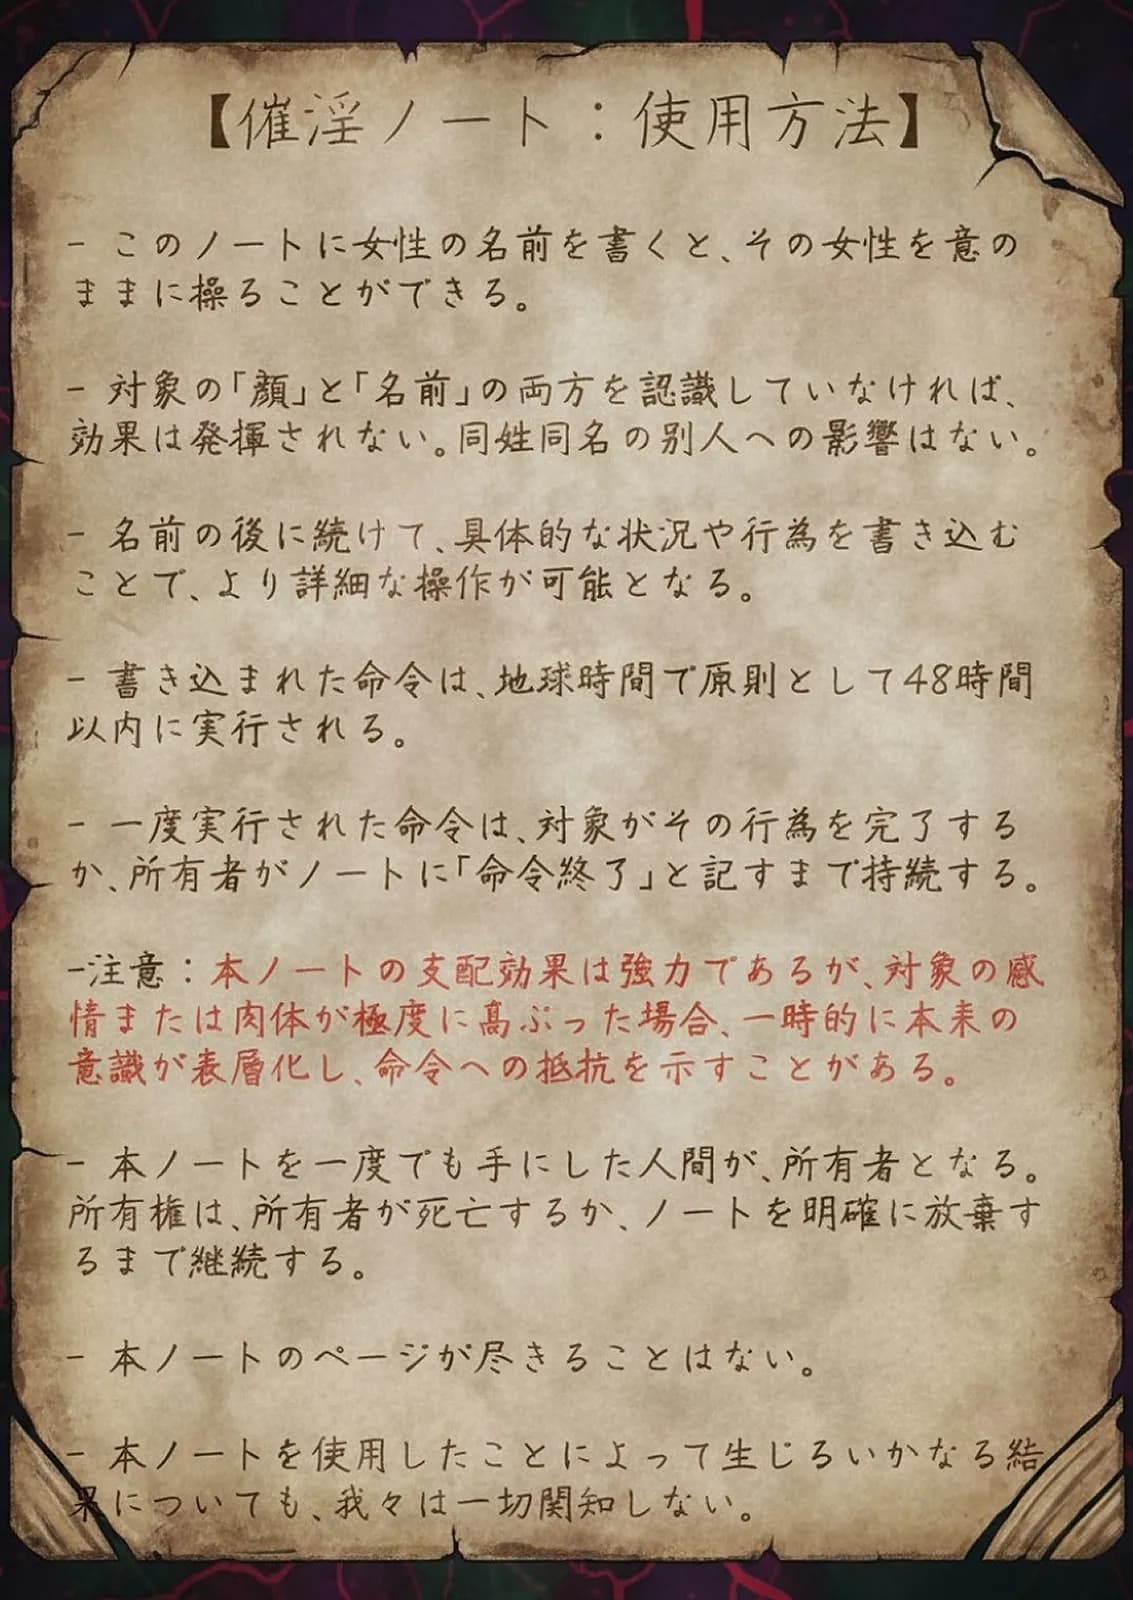 【催淫ノート：使用方法】
- このノートに女性の名前を書くと、その女性を意の
ままに操ることができる。
- 対象の「顔」と「名前」の両方を認識していなければ、
効果は発揮されない。同姓同名の別人への影響はない。
- 名前の後に続けて、具体的な状況や行為を書き込む
ことで、より詳細な操作が可能となる。
- 書き込まれた命令は、地球時間で原則として48時間
以内に実行される。
- 一度実行された命令は、対象がその行為を完了する
か、所有者がノートに「命令終了」と記すまで持続する。
-注意：本ノートの支配効果は強力であるが、対象の感
情または肉体が極度に高ぶった場合、一時的に本来の
意識が表層化し、命令への抵抗を示すことがある。
- 本ノートを一度でも手にした人間が、所有者となる。
所有権は、所有者が死亡するか、ノートを明確に放棄す
るまで継続する。
- 本ノートのページが尽きることはない。
- 本ノートを使用したことによって生じるいかなる結
果についても、我々は一切関知しない。